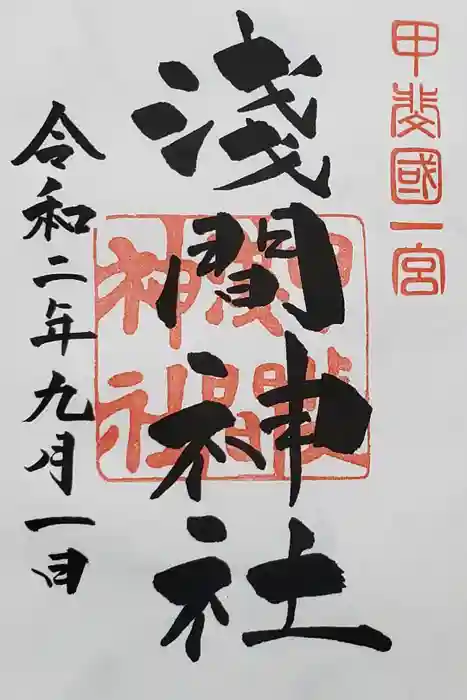 甲斐國一宮
淺間神社
甲斐國
淺間
神社
令和二年九月一日